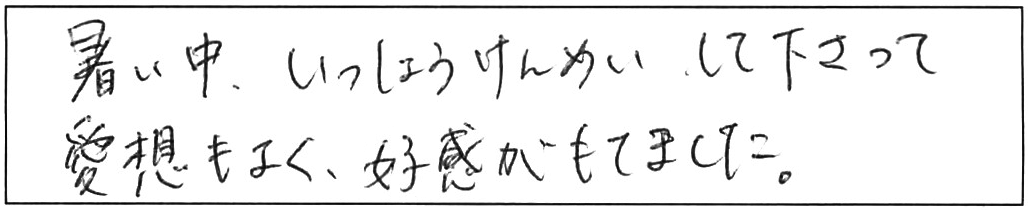 暑い中、いっしょうけんめい、して下さって
愛想もよく、好感がもてました。